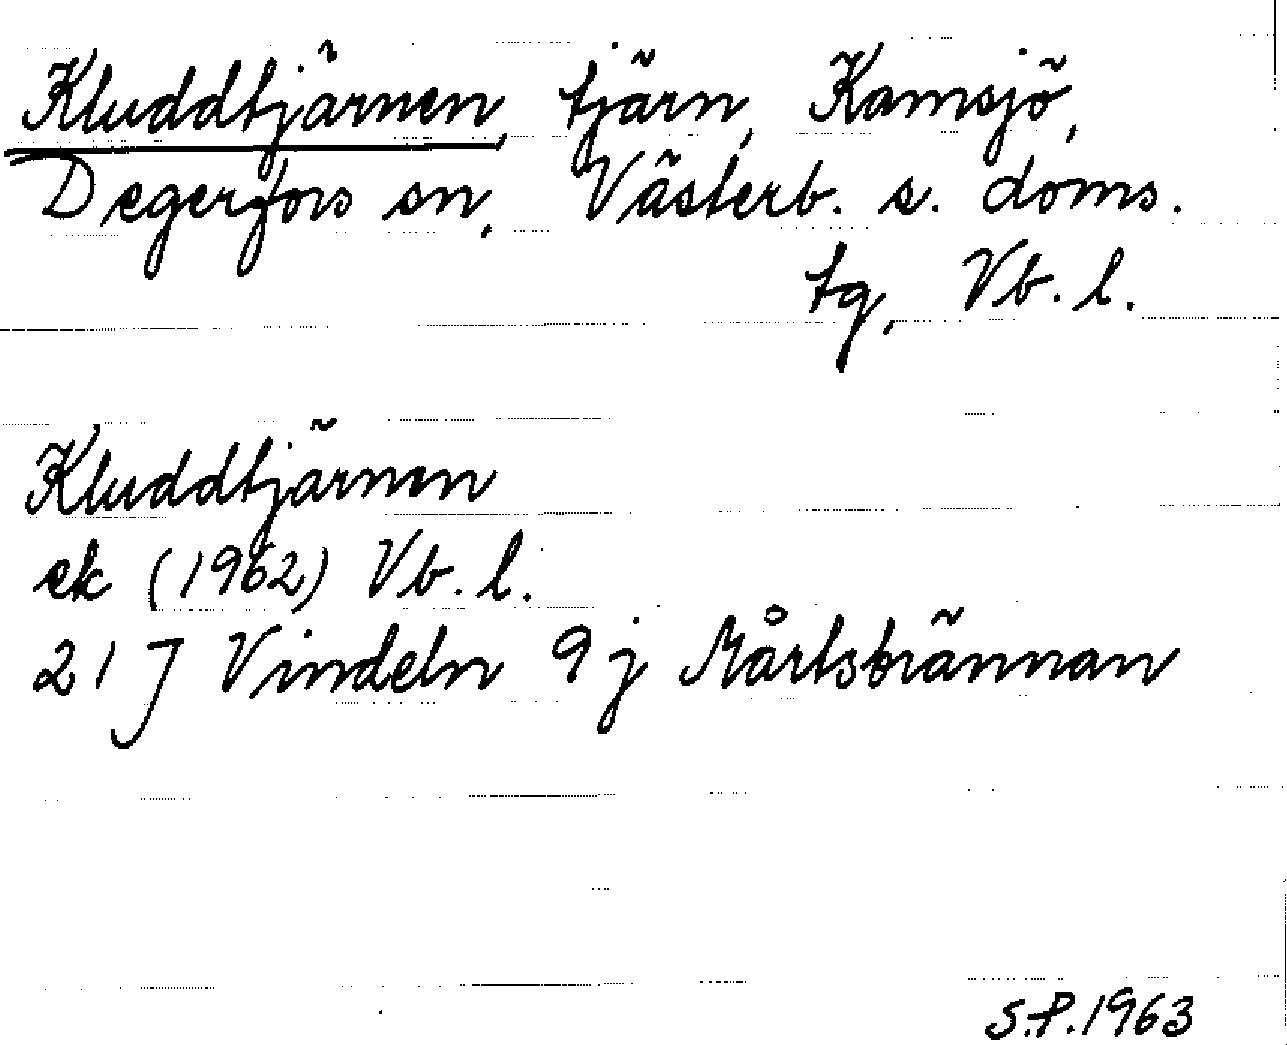 Kluddtjärnen, tjärn, Kamsjö,
Degerfors sn, Västerb. s. doms.
tg, Vb. l.
Kluddtjärnen
ek (1962) Vb. l.
21 J Vindeln 9 j Mårtsbrännan
S.P. 1963